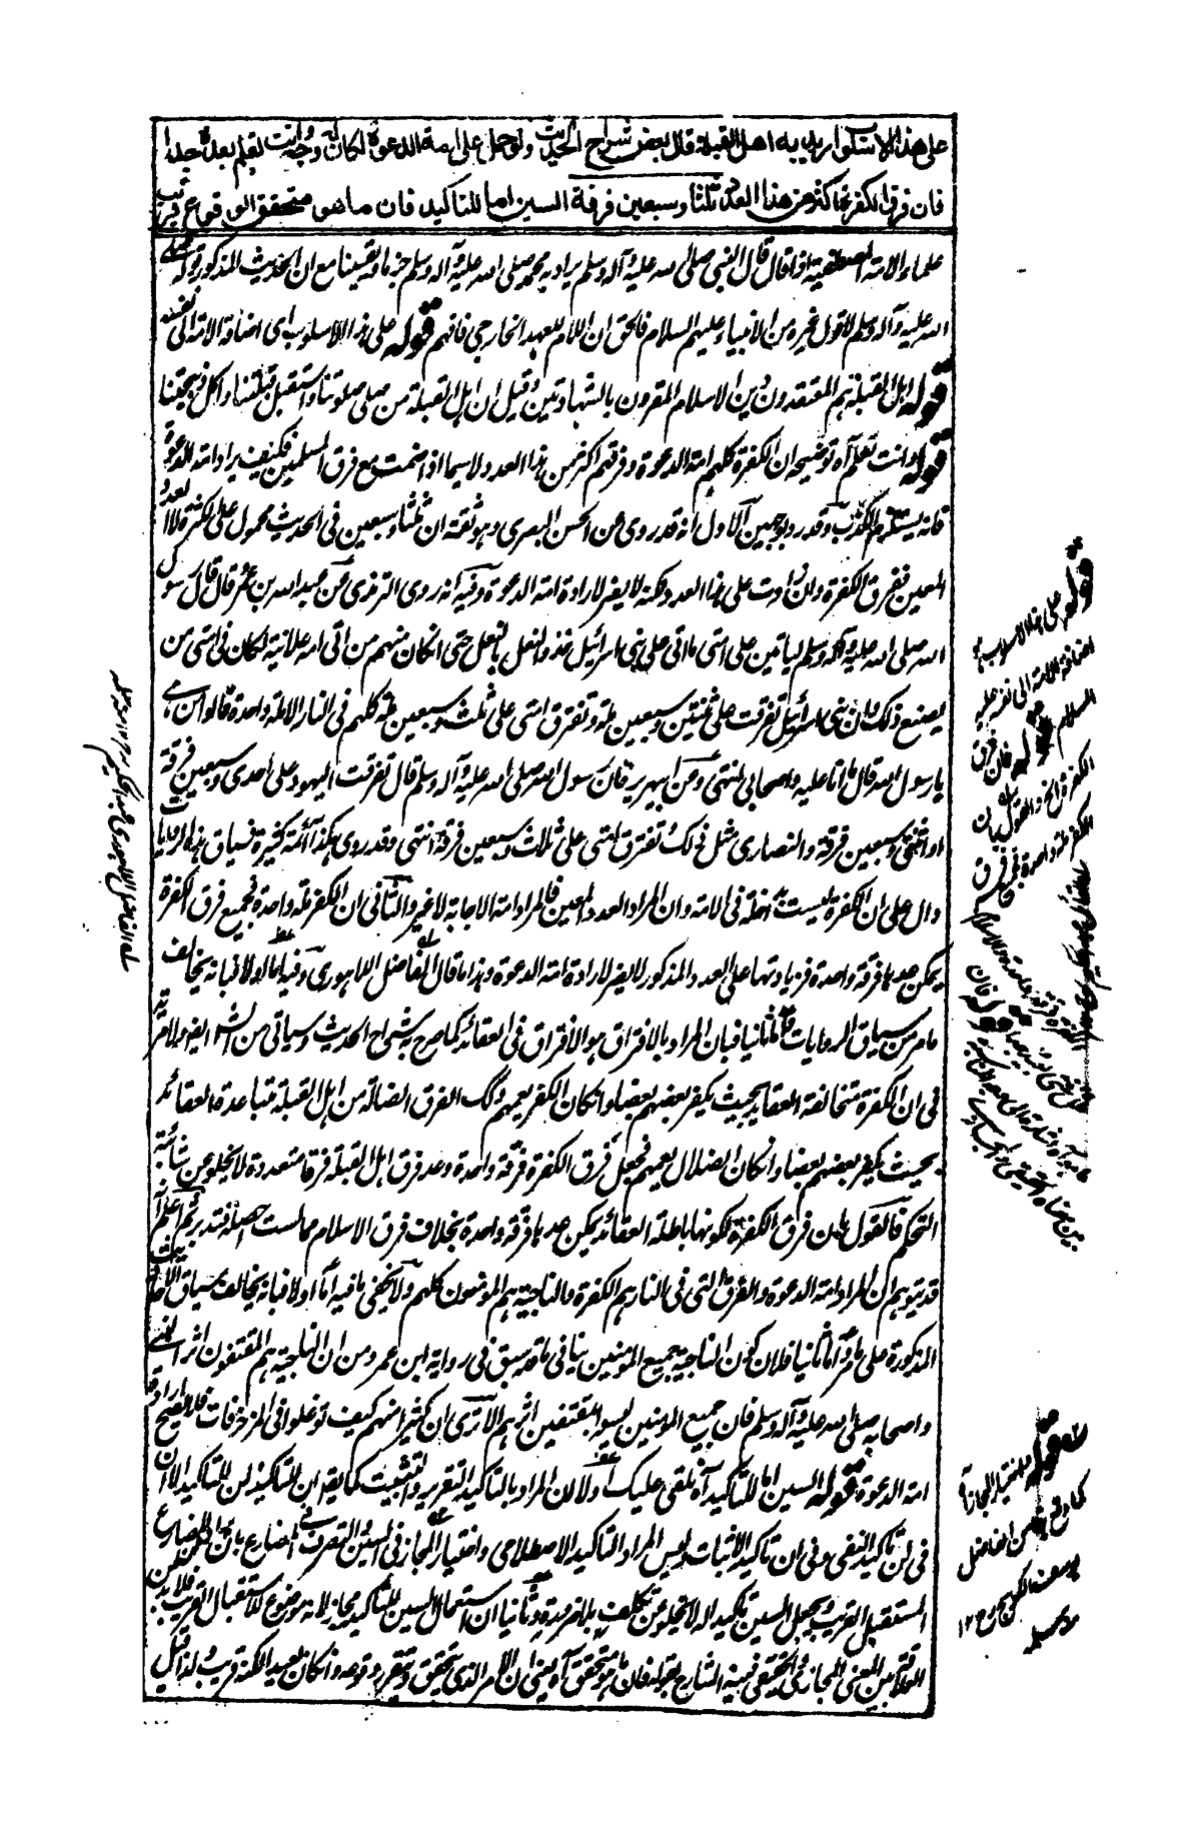 على هذا الاسلوب اريد به اهل القبلة قال بعض شراح الحديث ولو حمل على امة الدعوة لكان له وجه وانت تعلم بعده جدا
فان فرق الكفرة اكثر من هذا العدد ثلثا وسبعين فرقة السين اما للتاكيد فان ما هو متحقق الوقوع قريب
علماء الامة المصطفوية اذا قال قال النبي صلى الله عليه وآله وسلم يراد به محمد صلى الله عليه وآله وسلم جزما ويقينا مع ان الحديث المذكور قوله صلى
الله عليه وآله وسلم لا قول غيره من الانبياء عليهم السلام فالحق ان اللام للعهد الخارجي فافهم قوله على هذا الاسلوب اى اضافة الامة الى نفسه
قوله اهل القبلة هم المعتقدون بدين الاسلام المقرون بالشهادتين وقيل ان اهل القبلة من صلى صلوتنا واستقبل قبلتنا واكل ذبيحتنا
قوله وانت تعلم آه توضيحه ان الكفرة كلهم امة الدعوة وفرقهم اكثر من هذا العدد ولا سيما اذا ضمت مع فرق المسلمين فكيف يراد امة الدعوة
فانه يستلزم الكذب وقد رد بوجهين الاول انه قد روى عن الحسن البصرى وهو ثقة ان ثلثا وسبعين فى الحديث محمول على الكثرة لا العدد
المعين ففرق الكفرة وان زادت على هذا العدد ولكنه لا يضر لارادة امة الدعوة وفيه انه روى الترمذى عن عبد الله بن عمر قال قال رسول
الله صلى الله عليه وآله وسلم لياتين على امتى ما اتى على بنى اسرائيل حذو النعل بالنعل حتى ان كان منهم من اتى امه علانية لكان فى امتى من
يصنع ذلك وان بنى اسرائيل تفرقت على ثنتين وسبعين ملة وتفترق امتى على ثلث وسبعين ملة كلهم فى النار الا ملة واحدة قالوا من هى
يا رسول الله قال ما انا عليه واصحابى انتهى وعن ابى هريرة قال رسول الله صلى الله عليه وآله وسلم قال تفرقت اليهود على احدى وسبعين فرقة
او اثنتى وسبعين فرقة والنصارى مثل ذلك وتفترق امتى على ثلاث وسبعين فرقة انتهى وقد روى هكذا ائمة كثيرة فسياق هذه الروايات
دال على ان الكفرة ليست داخلة فى الامة وان المراد العدد المعين فالمراد امة الاجابة لا غير والثانى ان الكفر ملة واحدة فجميع فرق الكفرة
يمكن عدها فرقة واحدة فزيادتها على العدد المذكور لا يضر لارادة امة الدعوة وهذا ما قال الفاضل اللاهورى وفيه اما اولا فبانه يخالف
ما مر من سياق الروايات واما ثانيا فبان المراد بالافتراق هو الافتراق فى العقائد كما صرح به شراح الحديث وسياتى من الش ايضا ولا مرية
فى ان الكفرة متخالفة العقايد بحيث يكفر بعضهم بعضا وان كان الكفر يعمهم وكذلك الفرق الضالة من اهل القبلة متباعدة العقائد
بحيث يكفر بعضهم بعضا وان كان الضلال يعمهم فجعل فرق الكفرة فرقة واحدة وعد فرق اهل القبلة فرقا متعددة لا يخلو عن شائبة
التحكم فالقول بان فرق الكفرة لكونها باطلة العقائد يمكن عدها فرقة واحدة بخلاف فرق الاسلام مما لست احصله فتدبر ثم اعلم انه
قد يتوهم ان المراد امة الدعوة والفرق التى فى النار هم الكفرة والناجية هم المؤمنون كلهم ولا يخفى ما فيه اما اولا فبانه يخالف سياق الاحاديث
المذكورة على ما مر واما ثانيا فلان كون الناجية جميع المؤمنين ينافى ما قد سبق فى رواية ابن عمر ومن ان الناجية هم المقتفون اثر النبى
واصحابه صلى الله عليه وآله وسلم فان جميع المؤمنين ليسوا بمقتفين اثرهم الا ترى ان كثيرا منهم كيف توغلوا فى المزخرفات فلا يصح ارادة
امة الدعوة قوله السين اما للتاكيد آه يلقى عليك اولا ان المراد بالتاكيد التقرير والتثبيت كما يقول ان للتاكيد ولن للتاكيد الا ان
فى لن تاكيد النفى وفى ان تاكيد الاثبات وليس المراد التاكيد الاصطلاحى واختيار المجاز فى السين والتصرف فى المضارع بان يجعل المضارع
المستقبل القريب ويجعل السين تاكيدا له لا يخلو عن تكلف بلا ضرورة وثانيا ان استعمال السين للتاكيد مجاز لانه موضوع للاستقبال القريب فلا بد من
العلاقة بين المعنى المجازى والحقيقى فبينه الشارح بقوله فان ما هو متحقق آه يعنى ان الامر الذى يتحقق ويتقرر وقوعه وان كان بعيدا لكنه قريب ولذا قيل
قوله على هذا الاسلوب
اضافة الامة الى نفسه عليه
السلام قوله فان فرق
الكفرة الخ والقول بان
الكفر ملة واحدة
قوله اختيار المجاز آه
كما وقع من الفاضل